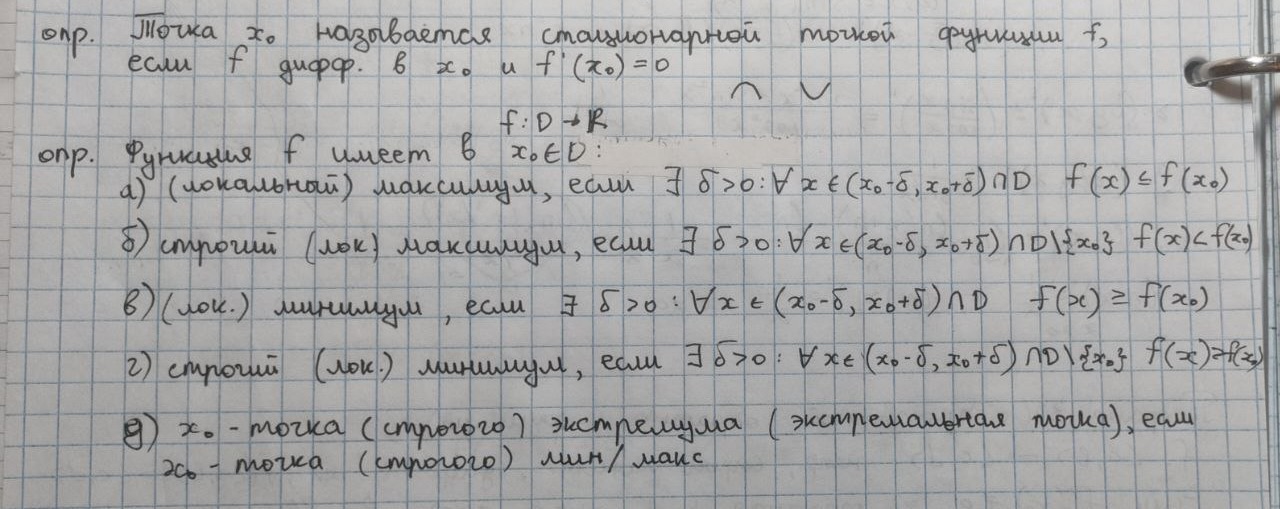 опр. Точка x₀ называется стационарной точкой функции f,
если f дифф. в x₀ и f'(x₀)=0
f: D → ℝ
опр. Функция f имеет в x₀∈D:
а) (локальный) максимум, если ∃ δ>0: ∀ x ∈ (x₀-δ, x₀+δ)∩D f(x) ≤ f(x₀)
б) строгий (лок) максимум, если ∃ δ>0: ∀ x ∈ (x₀-δ, x₀+δ)∩D\{x₀} f(x)<f(x₀)
в) (лок.) минимум, если ∃ δ>0: ∀x ∈ (x₀-δ, x₀+δ)∩D f(x) ≥ f(x₀)
г) строгий (лок.) минимум, если ∃ δ>0: ∀ x ∈ (x₀-δ, x₀+δ)∩D\{x₀} f(x)>f(x₀)
д) x₀ - точка (строгого) экстремума (экстремальная точка), если
x₀ - точка (строгого) мин/макс